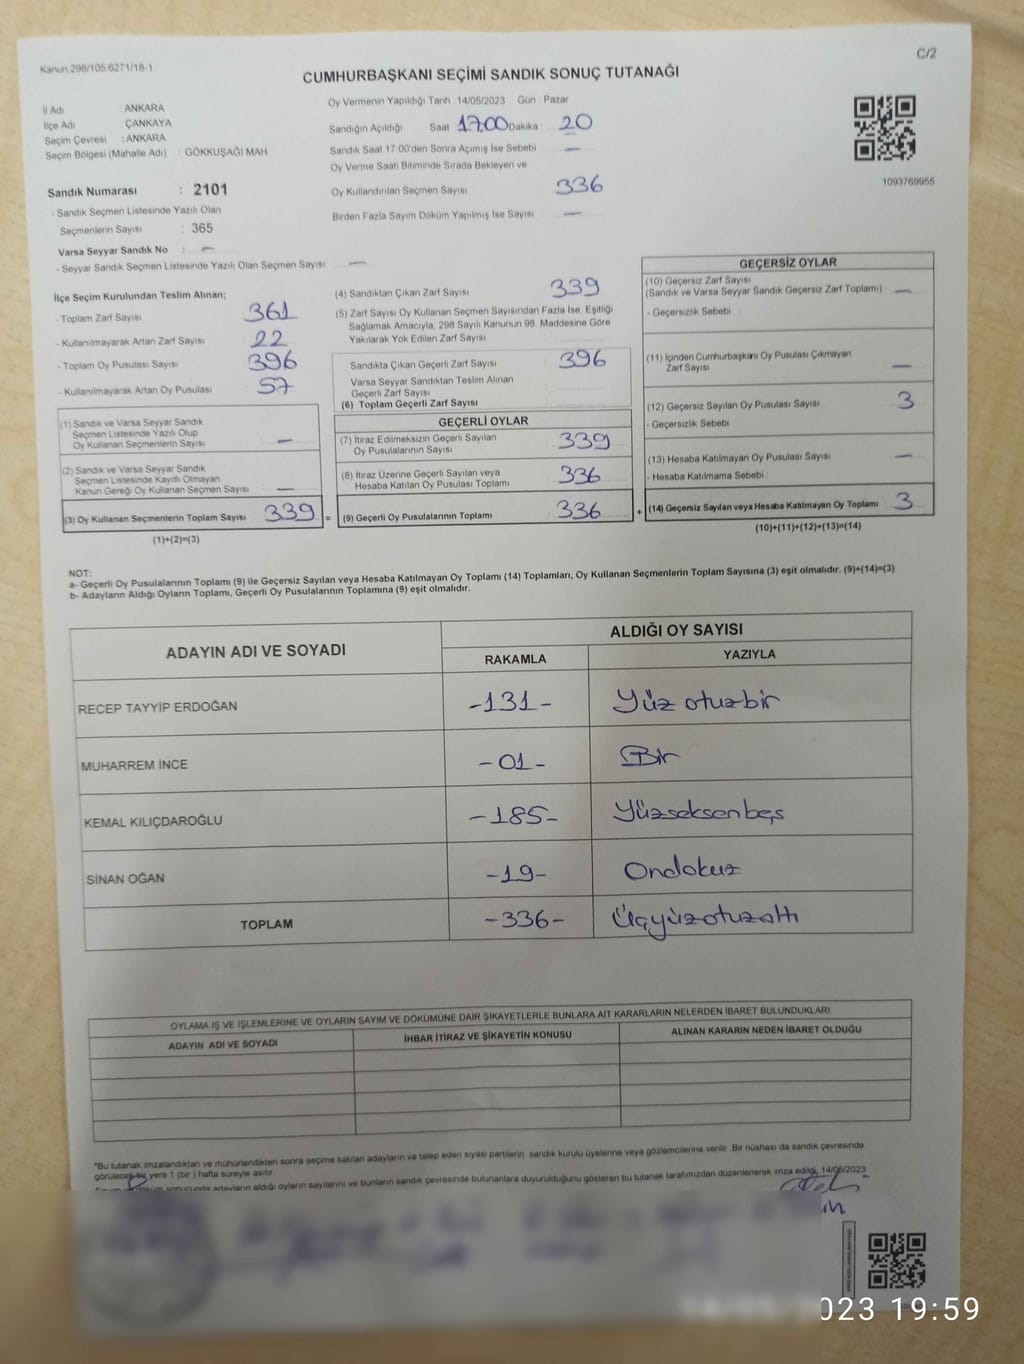 Kanun.298/105.6271/18-1
C/2
CUMHURBAŞKANI SEÇİMİ SANDIK SONUÇ TUTANAĞI
İl Adı : ANKARA
İlçe Adı : ÇANKAYA
Seçim Çevresi : ANKARA
Seçim Bölgesi (Mahalle Adı) : GÖKKUŞAĞI MAH
Sandık Numarası : 2101
- Sandık Seçmen Listesinde Yazılı Olan
Seçmenlerin Sayısı : 365
Varsa Seyyar Sandık No : —
- Seyyar Sandık Seçmen Listesinde Yazılı Olan Seçmen Sayısı : —
Oy Vermenin Yapıldığı Tarih : 14/05/2023 Gün : Pazar
Sandığın Açıldığı Saat 17.00 Dakika : 20
Sandık Saat 17:00'den Sonra Açımış İse Sebebi : —
Oy Verme Saati Bitiminde Sırada Bekleyen ve
Oy Kullandırılan Seçmen Sayısı : 336
Birden Fazla Sayım Döküm Yapılmış İse Sayısı : —
1093769955
İlçe Seçim Kurulundan Teslim Alınan;
- Toplam Zarf Sayısı : 361
- Kullanılmayarak Artan Zarf Sayısı : 22
- Toplam Oy Pusulası Sayısı : 396
- Kullanılmayarak Artan Oy Pusulası : 57
(1) Sandık ve Varsa Seyyar Sandık
Seçmen Listesinde Yazılı Olup
Oy Kullanan Seçmenlerin Sayısı : —
(2) Sandık ve Varsa Seyyar Sandık
Seçmen Listesinde Kayıtlı Olmayan
Kanun Gereği Oy Kullanan Seçmen Sayısı : —
(3) Oy Kullanan Seçmenlerin Toplam Sayısı : 339 =
(1)+(2)=(3)
(4) Sandıktan Çıkan Zarf Sayısı : 339
(5) Zarf Sayısı Oy Kullanan Seçmen Sayısından Fazla İse, Eşitliği
Sağlamak Amacıyla, 298 Sayılı Kanunun 98. Maddesine Göre
Yakılarak Yok Edilen Zarf Sayısı :
Sandıkta Çıkan Geçerli Zarf Sayısı : 396
Varsa Seyyar Sandıktan Teslim Alınan
Geçerli Zarf Sayısı :
(6) Toplam Geçerli Zarf Sayısı :
GEÇERLİ OYLAR
(7) İtiraz Edilmeksizin Geçerli Sayılan
Oy Pusulalarının Sayısı : 339
(8) İtiraz Üzerine Geçerli Sayılan veya
Hesaba Katılan Oy Pusulası Toplamı : 336
(9) Geçerli Oy Pusulalarının Toplamı : 336 +
GEÇERSİZ OYLAR
(10) Geçersiz Zarf Sayısı
(Sandık ve Varsa Seyyar Sandık Geçersiz Zarf Toplamı) : —
- Geçersizlik Sebebi :
(11) İçinden Cumhurbaşkanı Oy Pusulası Çıkmayan
Zarf Sayısı : —
(12) Geçersiz Sayılan Oy Pusulası Sayısı : 3
- Geçersizlik Sebebi :
(13) Hesaba Katılmayan Oy Pusulası Sayısı : —
- Hesaba Katılmama Sebebi :
(14) Geçersiz Sayılan veya Hesaba Katılmayan Oy Toplamı : 3
(10)+(11)+(12)+(13)=(14)
NOT:
a- Geçerli Oy Pusulalarının Toplamı (9) ile Geçersiz Sayılan veya Hesaba Katılmayan Oy Toplamı (14) Toplamları, Oy Kullanan Seçmenlerin Toplam Sayısına (3) eşit olmalıdır. (9)+(14)=(3)
b- Adayların Aldığı Oyların Toplamı, Geçerli Oy Pusulalarının Toplamına (9) eşit olmalıdır.
ADAYIN ADI VE SOYADI
ALDIĞI OY SAYISI
RAKAMLA YAZIYLA
RECEP TAYYİP ERDOĞAN -131- Yüz otuzbir
MUHARREM İNCE -01- Bir
KEMAL KILIÇDAROĞLU -185- Yüzseksenbeş
SİNAN OĞAN -19- Ondokuz
TOPLAM -336- Üçyüzotuzaltı
OYLAMA İŞ VE İŞLEMLERİNE VE OYLARIN SAYIM VE DÖKÜMÜNE DAİR ŞİKAYETLERLE BUNLARA AİT KARARLARIN NELERDEN İBARET BULUNDUKLARI
ADAYIN ADI VE SOYADI İHBAR İTİRAZ VE ŞİKAYETİN KONUSU ALINAN KARARIN NEDEN İBARET OLDUĞU
"Bu tutanak imzalandıktan ve mühürlendikten sonra seçime katılan adayların ve talep eden siyasi partilerin sandık kurulu üyelerine veya gözlemcilerine verilir. Bir nüshası da sandık çevresinde
görülecek bir yere 1 (bir) hafta süreyle asılır.
döküm sonucunda adayların aldığı oyların sayılarını ve bunların sandık çevresinde bulunanlara duyurulduğunu gösteren bu tutanak tarafımızdan düzenlenerek imza edildi. 14/05/2023
023 19:59